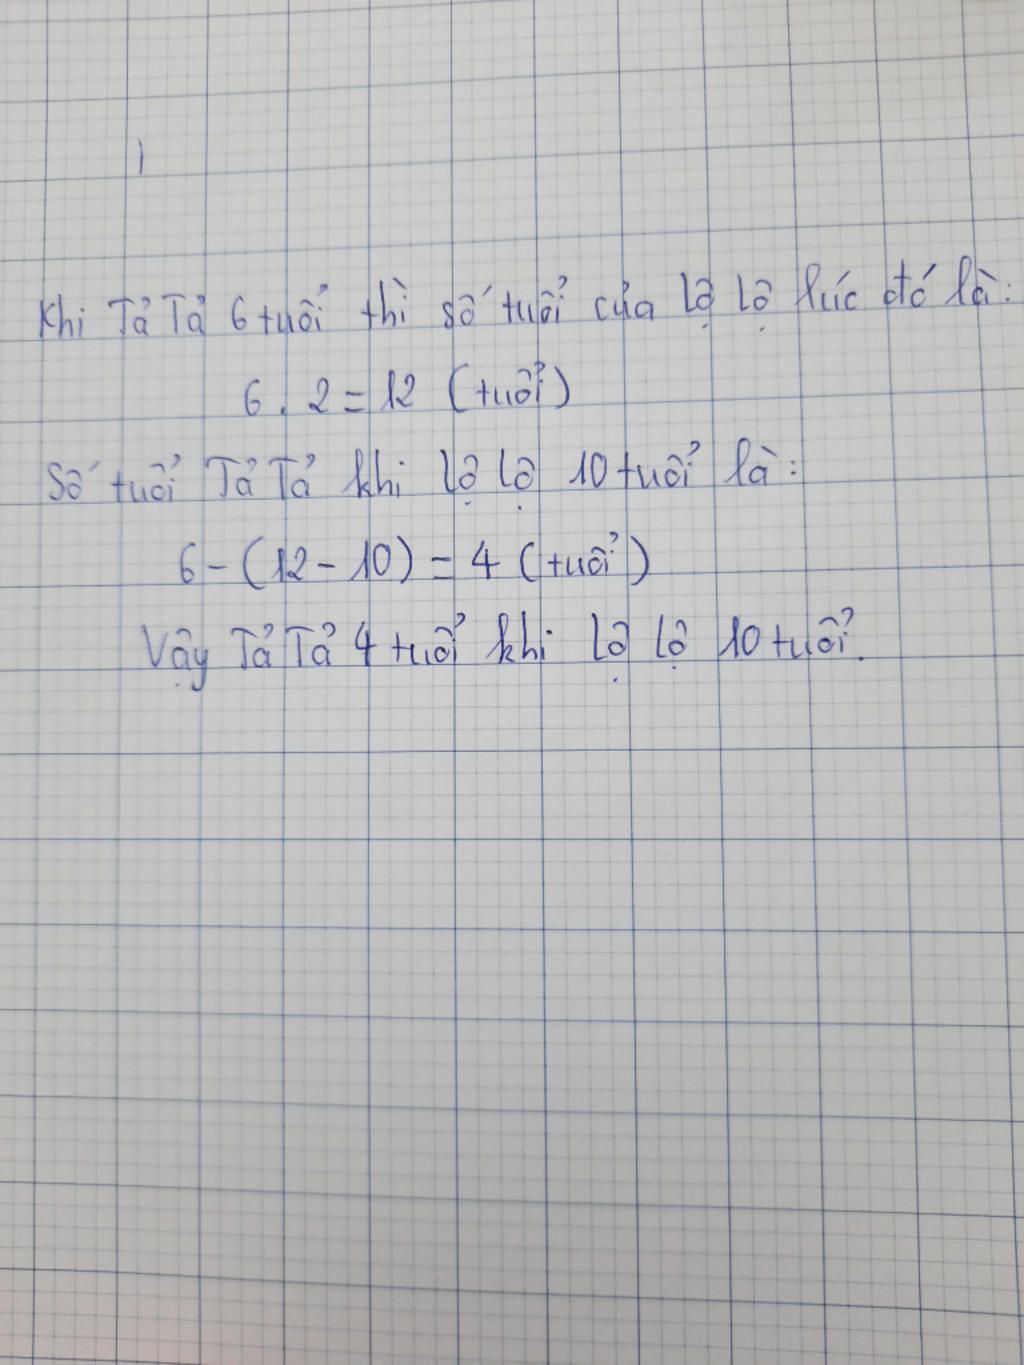 Khi Tả Tả 6 tuổi thì số tuổi của Lộ Lộ lúc đó là:
6 . 2 = 12 (tuổi)
Số tuổi Tả Tả khi Lộ Lộ 10 tuổi là:
6 - (12 - 10) = 4 (tuổi)
Vậy Tả Tả 4 tuổi khi Lộ Lộ 10 tuổi.